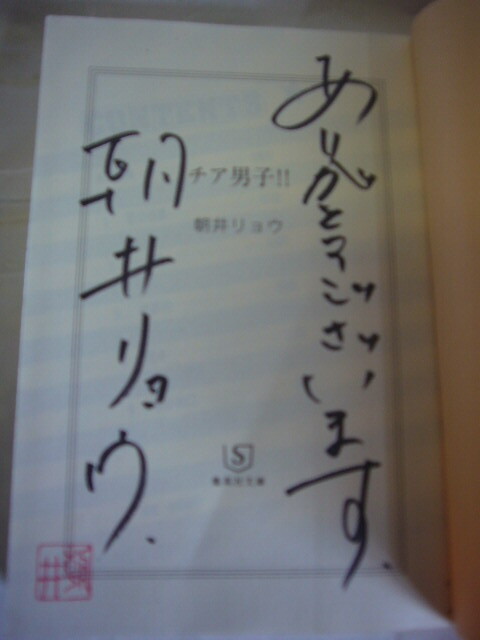 ありがとうございます。
チア男子!!
朝井リョウ
朝井リョウ.
S
集英社文庫
朝井